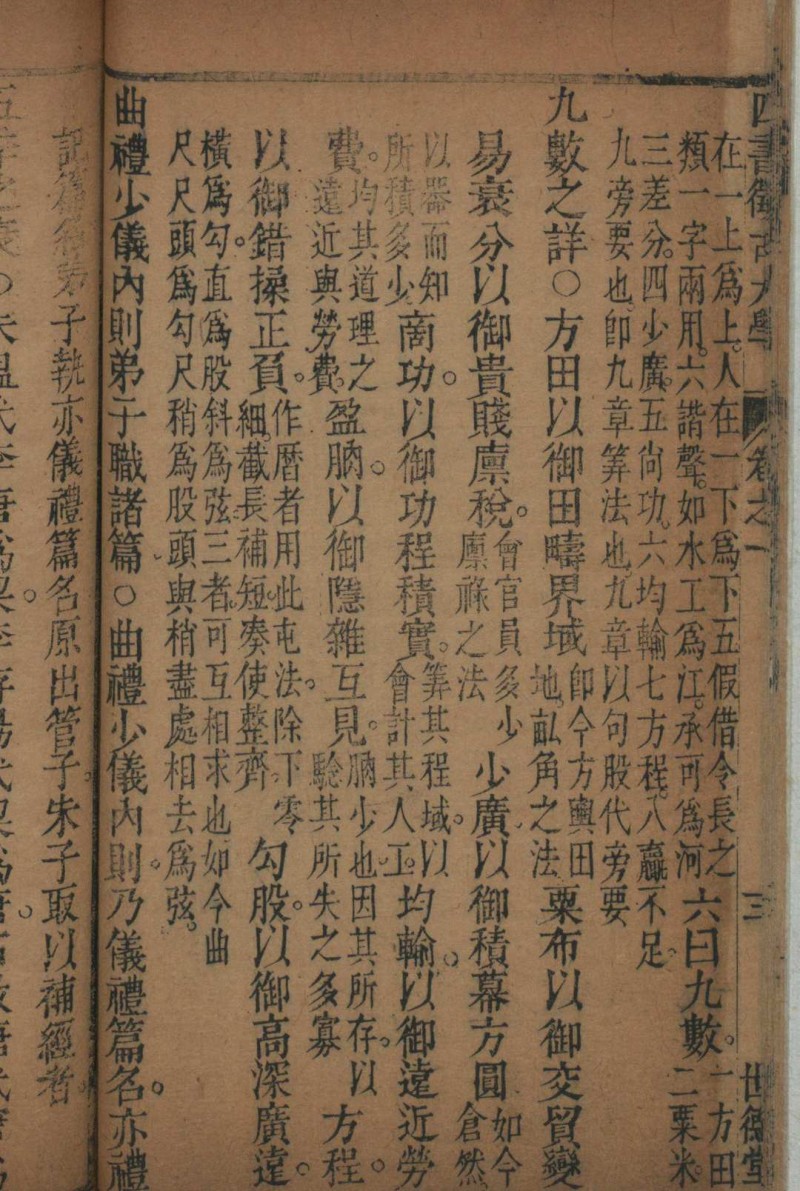 四書徵古大學 卷之一 三 世德堂
在一上爲上。人在一下爲下五假借令長之
類一字兩用。六諧聲。如水工爲江。承可爲河
六曰九數。
一方田
二粟米。
三差分。四少廣。五尚功。六均輸七方程。八贏不足。
九旁要也卽九章筭法也九章以句股代旁要
九數之詳○方田以御田疇界域
卽今方輿田
地。畝角之法
粟布以御交貿變
易衰分以御貴賤廩稅。
會官員多少
廩祿之法
少廣以御積幕方圓
如今
倉然
以器而知
所積多少
商功。以御功程積實。
筭其程域。以
會計其人工。
均輸。以御遠近勞
費。
均其道理之
遠近與勞費。
盈朒。以御隱雜互見。
朒少也因其所存。以
驗其所失之多寡
方程。
以御錯揉正負。
作曆者用此屯法。除下零
細。截長補短。湊使整齊
勾股。以御高深廣遠。
橫爲勾。直爲股斜爲弦三者。可互相求也如今曲
尺尺頭爲勾尺稍爲股頭與梢盡處相去爲弦。
曲禮少儀內則弟子職諸篇○曲禮少儀內則。乃儀禮篇名。亦禮
記篇名弟子執亦儀禮篇名原出管子。朱子取以補經者。